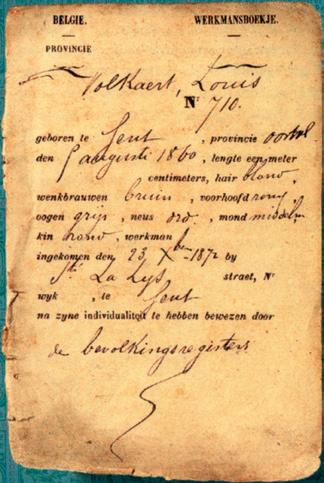 BELGIE. WERKMANSBOEKJE.
PROVINCIE
Volkaert, Louis
Nr 710.
geboren te Gent , provincie
den augusti 1860, lengte een meter
centimeters, hair blond,
wenkbrauwen bruin , voorhoofd rond
oogen grijs , neus ord. , mond middelm
kin rond, werkman
ingekomen den 23 Xber 1872 by
Sté La Lys straet, Nr
wyk , te Gent
na zyne individualiteit te hebben bewezen door
de bevolkingsregisters